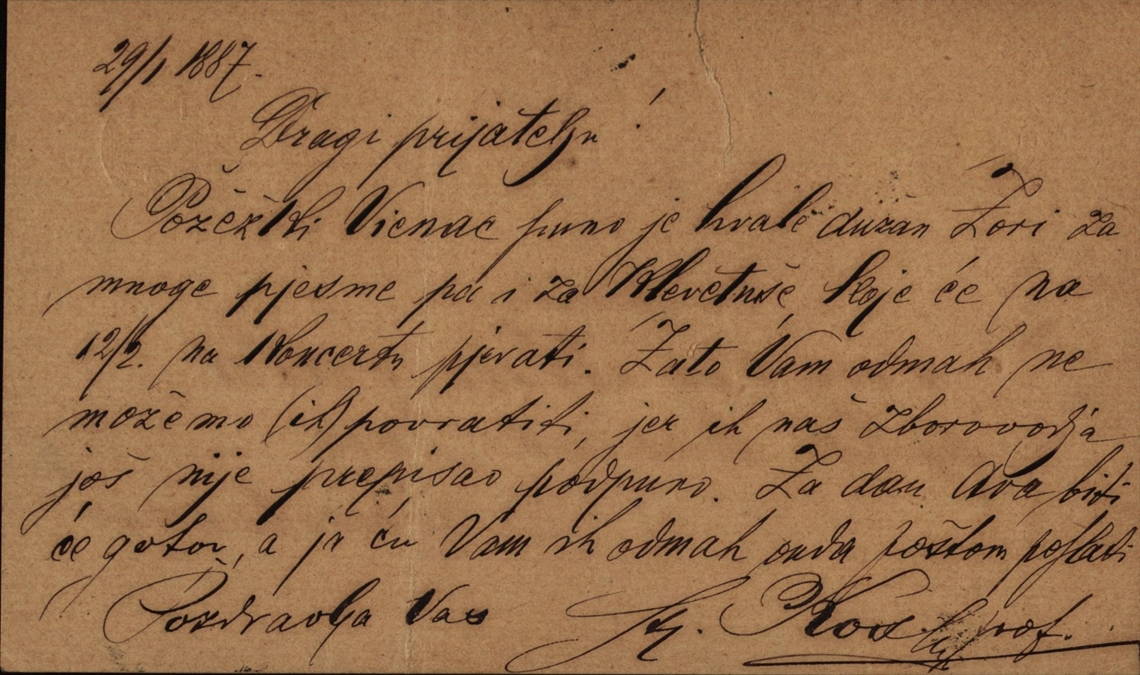 29/1 1887.
Dragi prijatelju!
Požežki Vienac puno je hvale dužan Zori za
mnoge pjesme pa i za Klevetuše, koje će na
12/2. na koncertu pjevati. Zato Vam odmah ne
možemo (ih) povratiti, jer ih naš zborovodja
još nije prepisao podpuno. Za dan dva biti
će gotov, a ja ću Vam ih odmah onda poštom poslati
Pozdravlja Vas Stj. prof.